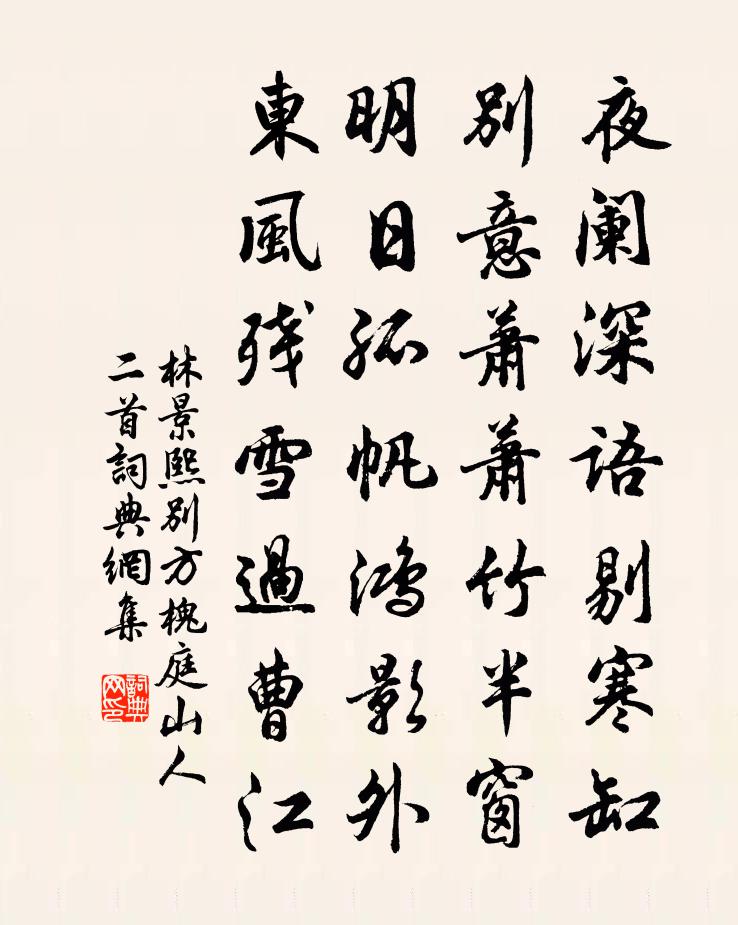 夜阑深语剔寒缸
别意萧萧竹半窗
明日孤帆鸿影外
東風残雪過曹江
林景熙别方槐庭山人
二首詞典網集
詞典网印